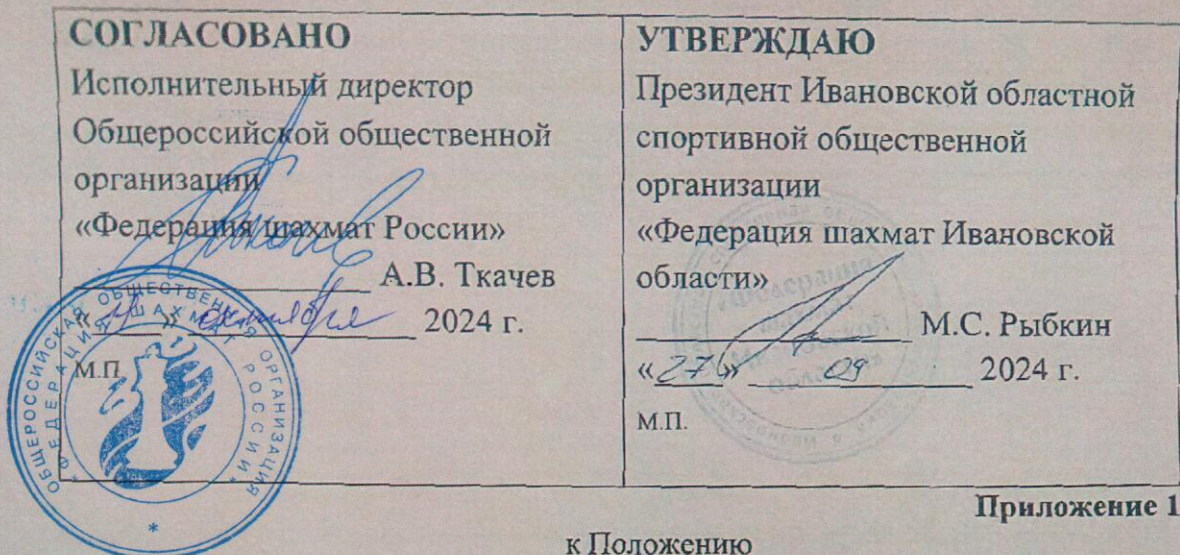 СОГЛАСОВАНО
Исполнительный директор
Общероссийской общественной
организации
«Федерация шахмат России»
А.В. Ткачев
« » октября 2024 г.
М.П.
ОБЩЕРОССИЙСКАЯ ОБЩЕСТВЕННАЯ ОРГАНИЗАЦИЯ
"ФЕДЕРАЦИЯ ШАХМАТ РОССИИ"
*
УТВЕРЖДАЮ
Президент Ивановской областной
спортивной общественной
организации
«Федерация шахмат Ивановской
области»
М.С. Рыбкин
«27» 09 2024 г.
М.П.
Федерация
шахмат
Ивановской
области
Приложение 1
к Положению